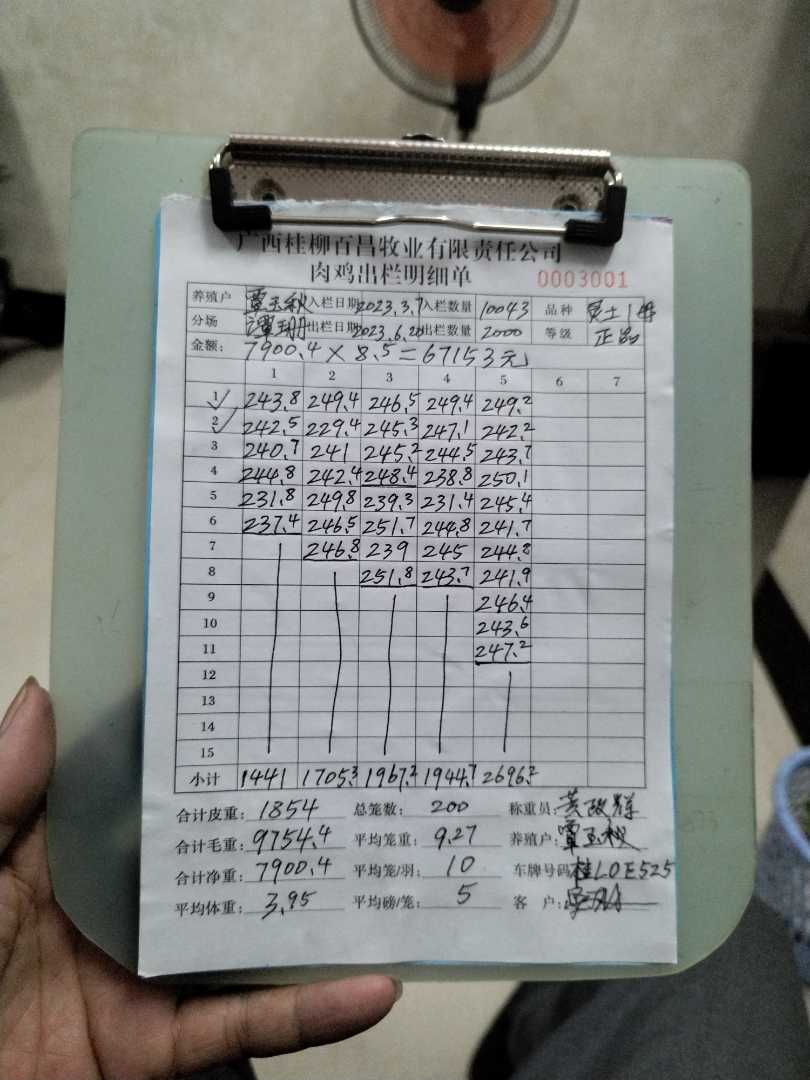 广西桂柳百昌牧业有限责任公司
肉鸡出栏明细单 0003001
养殖户 覃玉秋 入栏日期 2023.3.7 入栏数量 10043 品种
分场 出栏日期 2023.6.20 出栏数量 2000 等级 正品
金额: 7900.4 × 8.5 = 67153元
1 2 3 4 5 6 7
1 243.8 249.4 246.5 249.4 249.2
2 242.5 229.4 245.3 247.1 242.2
3 240.7 241 245.2 244.5 243.7
4 244.8 242.4 248.4 238.8 250.1
5 231.8 249.8 239.3 231.4 245.4
6 237.4 246.5 251.7 244.8 241.7
7 246.8 239 245 244.8
8 251.8 243.7 241.9
9 246.4
10 243.6
11 247.2
12
13
14
15
小计 1441 1705.3 1967.2 1944.7 2696.2
合计皮重: 1854 总笼数: 200 称重员:
合计毛重: 9754.4 平均笼重: 9.27 养殖户: 覃玉秋
合计净重: 7900.4 平均笼/羽: 10 车牌号码 桂L0E525
平均体重: 3.95 平均磅/笼: 5 客 户: